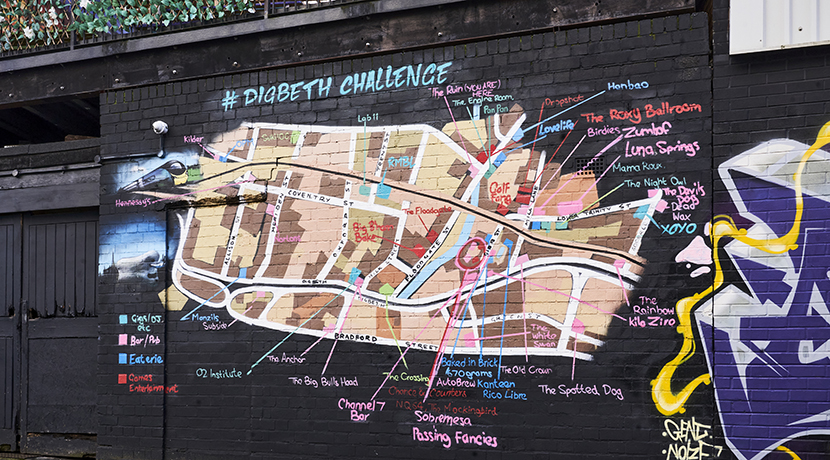 # DIGBETH CHALLENGE
The Ruin (YOU ARE)
HERE
The Engine Room
Pan Pan
Honbao
Dropshots
The Roxy Ballroom
Lovelife
Birdies
Zumhof
Luna Springs
Mama Roux
The Night Owl
The Devils
Dog
Dead
Wax
XOYO
Lab 11
Kilder
Hennessys
Golf
Fang
The Floodgate
Big Bear
Bake
Nortons
COVENTRY ST
ALLISON
FLOODGATE ST
LOWER TRINITY ST
DIGBETH
BRADFORD
STREET
Gigs/DJ
etc
Bar/Pub
Eaterie
Games
Entertainment
Menzils
Subside
O2 Institute
The Anchor
The Big Bulls Head
Channel 7
Bar
The Crossing
Chance & Counters
Baked in Brick
670grams
AutoBrew
Kanteen
Rico Libre
The Old Crown
The
White
Swan
The Spotted Dog
The
Rainbow
Kilo Ziro
Nortons
Mockingbird
Sobremesa
Passing Fancies
GENT
NOIZE